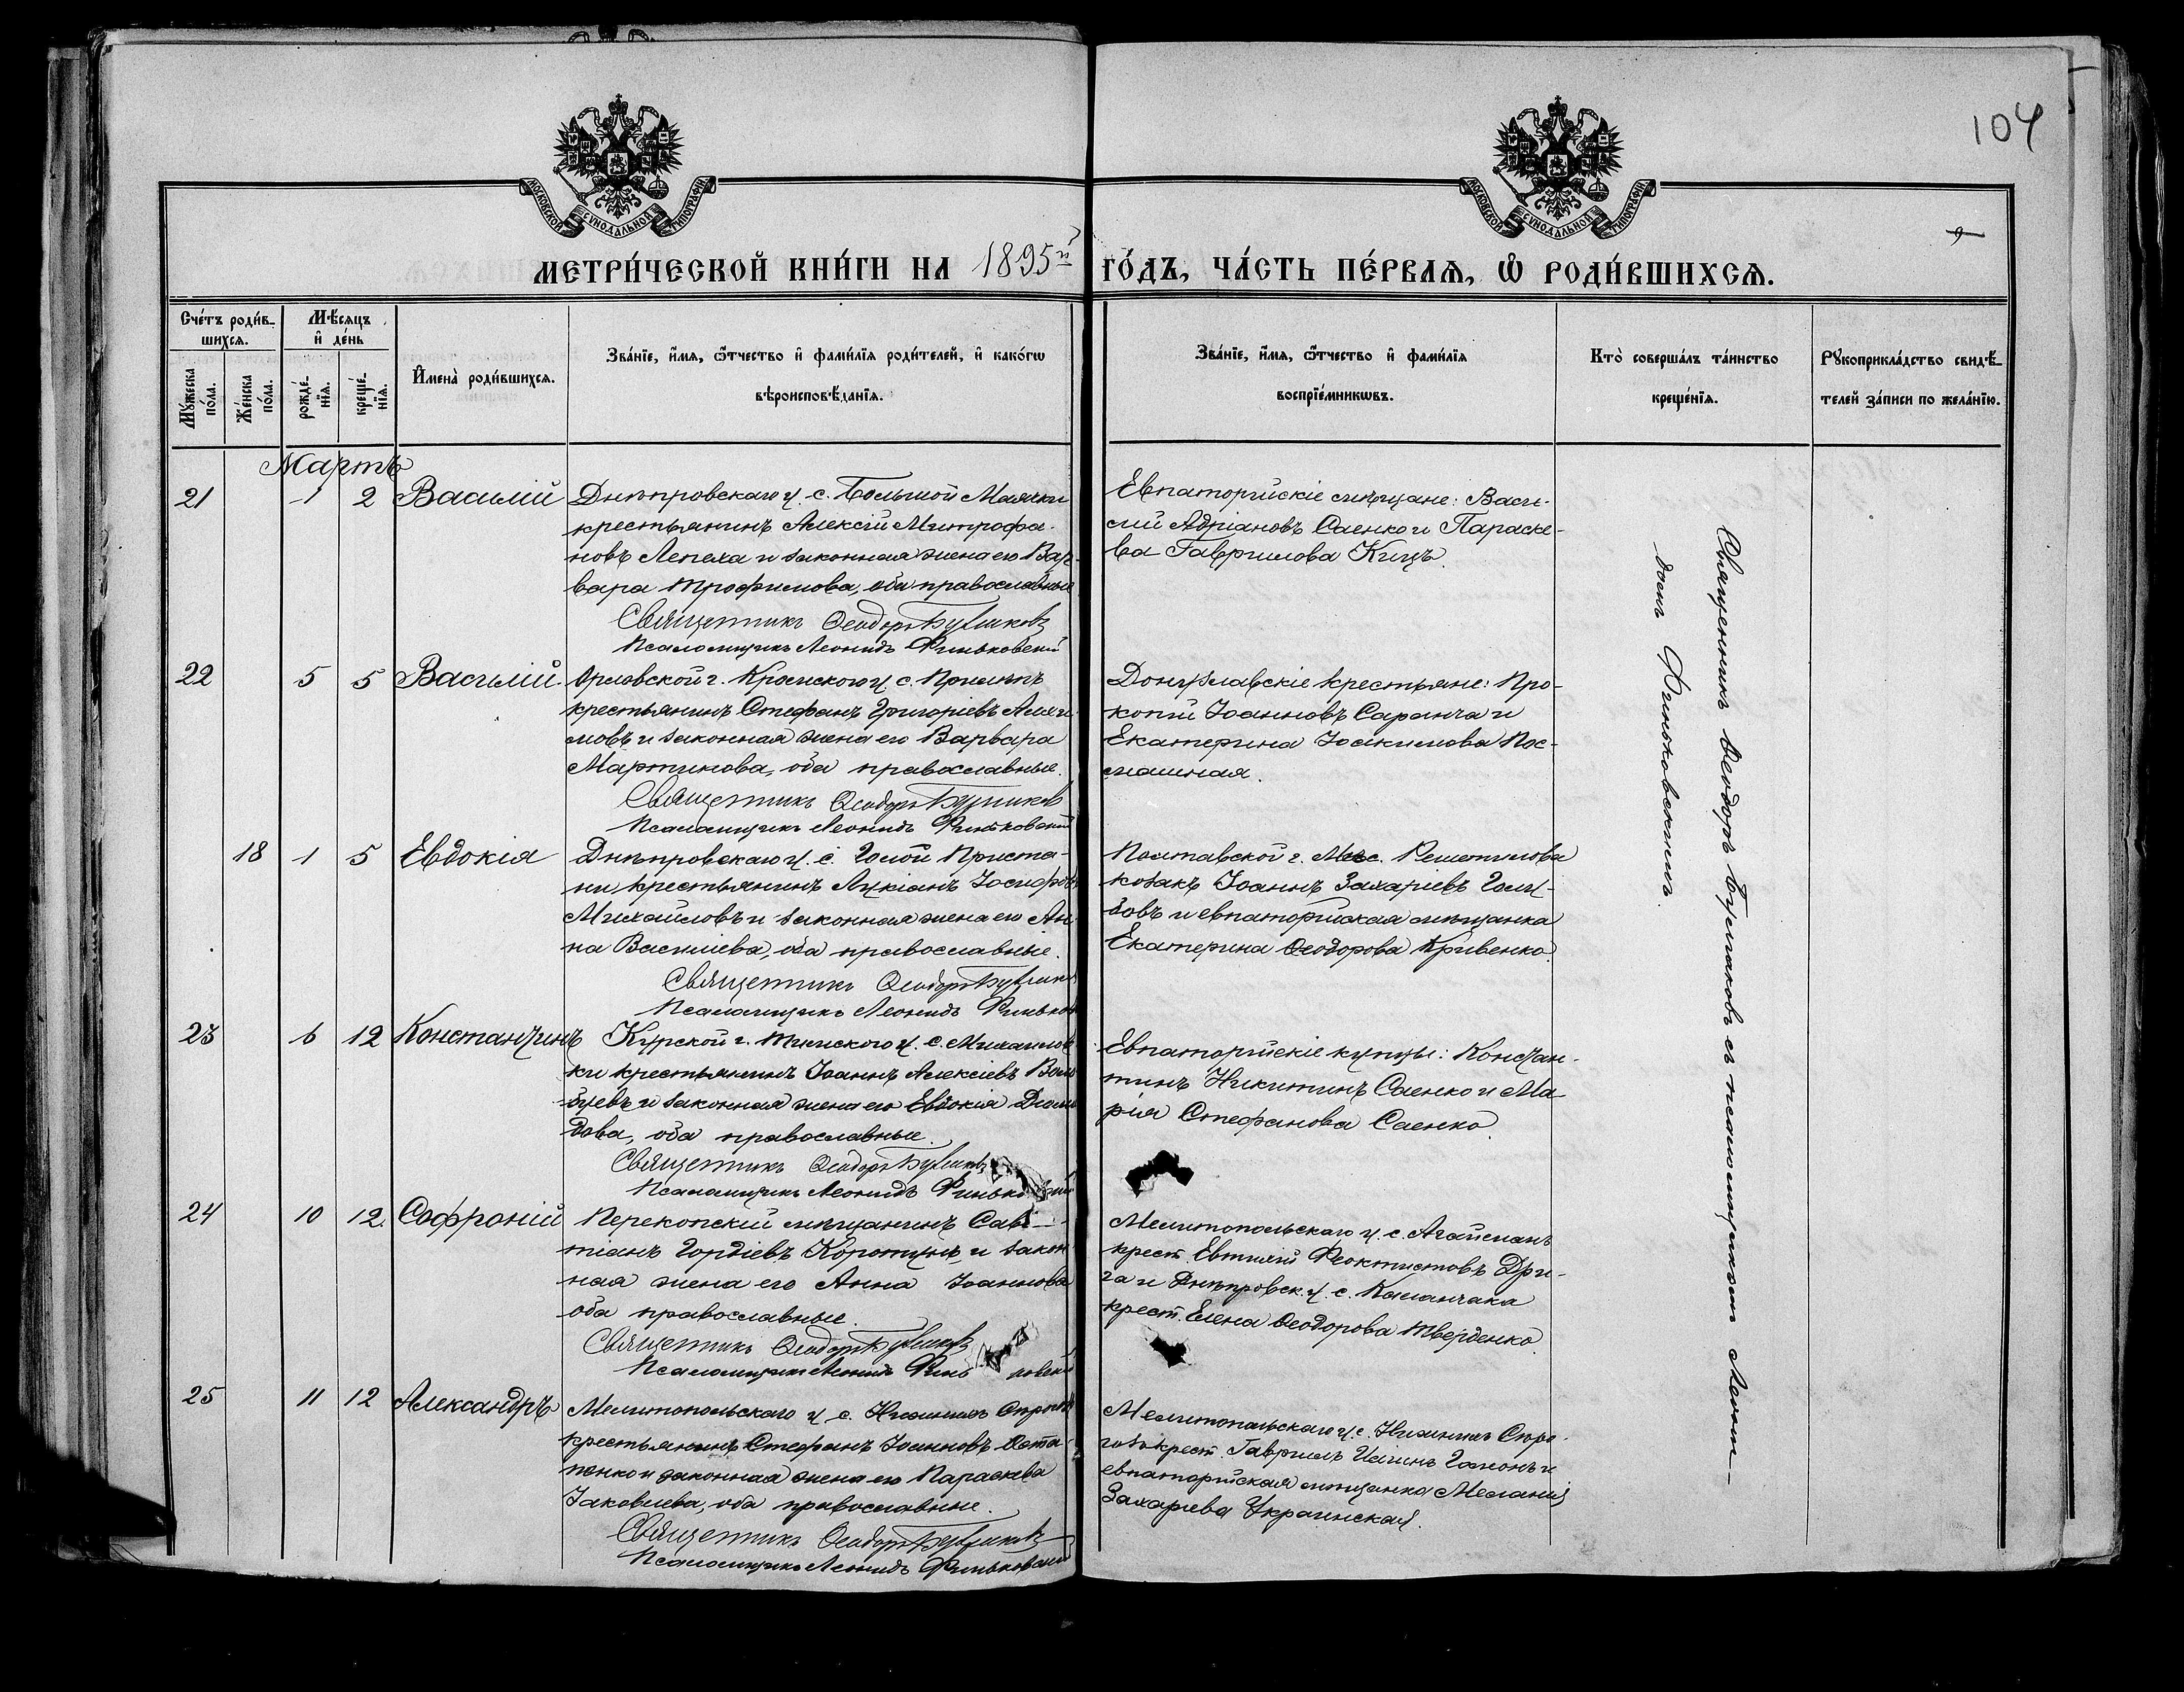 104
МОСКОВСКОЙ СѴНОДАЛЬНОЙ ТИПОГРАФІИ
МОСКОВСКОЙ СѴНОДАЛЬНОЙ ТИПОГРАФІИ
9
МЕТРИ́ЧЕСКОЙ КНИ́ГИ НА 1895й ГО́ДЪ, ЧА́СТЬ ПЕ́РВАѦ, Ѡ҆ РОДИ́ВШИХСѦ.
Сче́тъ роди́в-
шихсѧ.
Мꙋ́жеска по́ла.
Же́нска по́ла.
Мѣ́сѧцъ
и҆ де́нь
рожде́-
нїѧ.
креще́-
нїѧ.
И҆мена̀ роди́вшихсѧ.
Зва́нїе, и҆́мѧ, ѻ҆́тчество и҆ фами́лїѧ роди́телей, и҆ како́гѡ
вѣроисповѣ́данїѧ.
Зва́нїе, и҆́мѧ, ѻ҆́тчество и҆ фами́лїѧ
воспрїе́мникѡвъ.
Кто̀ соверша́лъ та́инство
креще́нїѧ.
Рꙋкоприкла́дство свидѣ́-
телей за́писи по жела́нїю.
Мартъ
21 1 2 Василій
Днѣпровскаго у. с. Большой Маячки
крестьянинъ Алексій Митрофа-
новъ Лепеха и законная жена его Вар-
вара Трофимова, оба православные
Священникъ Ѳеодоръ
Псаломщикъ Леонидъ Финьковскій
Евпаторійскіе мѣщане: Васи-
лій Адріановъ Саенко и Параске-
ва Гаврилова Кицъ.
22 5 5 Василій
Орловской г. Кромского у. с.
крестьянинъ Стефанъ Григоріевъ
мовъ и законная жена его Варвара
Мартинова, оба православные.
Священникъ Ѳеодоръ
Псаломщикъ Леонидъ Финьковскій
Донузлавскіе крестьяне: Про-
копій Іоанновъ Саранча и
Екатерина Іоакимова Пос-
машная.
18 1 5 Евдокія
Днѣпровскаго у. с. Голой Приста-
ни крестьянинъ Лукіанъ Іосифовъ
Михайловъ и законная жена его Ан-
на Васильева, оба православные.
Священникъ Ѳеодоръ
Псаломщикъ Леонидъ Финьков
Полтавской г. Решетилова
козакъ Іоаннъ Захаріевъ Голу-
бовъ и евпаторійская мѣщанка
Екатерина Ѳеодорова Кривенко.
23 6 12 Константинъ
Курской г. Тимского у. с. Михайлов-
ки крестьянинъ Іоаннъ Алексіевъ
и законная жена его Евдокія
дова, оба православные.
Священникъ Ѳеодоръ
Псаломщикъ Леонидъ
Евпаторійскіе купцы: Констан-
тинъ Никитинъ Саенко и Ма-
рія Стефанова Саенко.
24 10 12 Софроній
Перекопскій мѣщанинъ Сава-
тіанъ Гордіевъ Коротунъ и закон-
ная жена его Анна Іоаннова
оба православные.
Священникъ Ѳеодоръ
Псаломщикъ Леонидъ
Мелитопольскаго у. с. Агайманъ
крест. Евтихій Феоктистовъ Дри-
га и Днѣпровск. у. с. Каланчака
крест. Елена Ѳеодорова Твёрденко.
25 11 12 Александръ
Мелитопольскаго у. с. Нижнихъ
крестьянинъ Стефанъ Іоанновъ Оста-
пенко и законная жена его Параскева
Іаковлева, оба православные.
Священникъ Ѳеодоръ
Псаломщикъ Леонидъ Финьковскій
Мелитопольскаго у. с. Нижнихъ Сѣро-
гозъ крест. Гавріилъ Гапонъ и
евпаторійская мѣщанка Меланія
Захаріева Украинская.
Священникъ Ѳеодоръ съ псаломщикомъ Леони-
домъ Финьковскимъ.